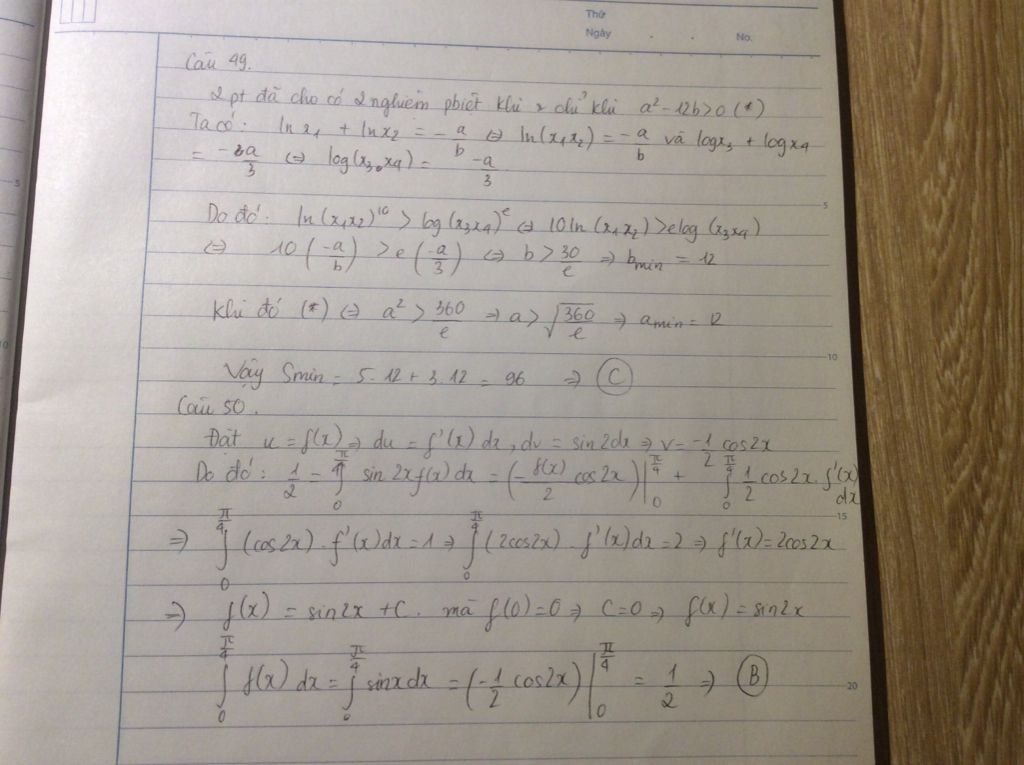 Thứ
Ngày . . No.
Câu 49.
2 pt đã cho có 2 nghiệm pbiệt khi & chỉ khi a² - 12b > 0 (*)
Ta có: ln x₁ + ln x₂ = -a/b ⇔ ln(x₁x₂) = -a/b và logx₃ + logx₄
= -a/3 ⇔ log(x₃.x₄) = -a/3
5
Do đó: ln(x₁x₂)¹⁰ > log(x₃x₄)ᵉ ⇔ 10ln(x₁x₂) > elog(x₃x₄)
⇔ 10(-a/b) > e(-a/3) ⇔ b > 30/e ⇒ bmin = 12
Khi đó (*) ⇔ a² > 360/e ⇒ a > √(360/e) ⇒ amin = 12
10
Vậy Smin = 5.12 + 3.12 = 96 ⇒ C
Câu 50.
Đặt u = f(x) ⇒ du = f'(x)dx, dv = sin2dx ⇒ v = -1/2 cos2x
Do đó: 1/2 = ∫₀^(π/4) sin 2x f(x)dx = (-f(x)/2 cos2x)|₀^(π/4) + ∫₀^(π/4) 1/2 cos2x.f'(x)
dx
15
⇒ ∫₀^(π/4) (cos2x).f'(x)dx = 1 ⇒ ∫₀^(π/4) (2cos2x).f'(x)dx = 2 ⇒ f'(x) = 2cos2x
⇒ f(x) = sin2x + C. mà f(0) = 0 ⇒ C = 0 ⇒ f(x) = sin2x
∫₀^(π/4) f(x)dx = ∫₀^(π/4) sinxdx = (-1/2 cos2x)|₀^(π/4) = 1/2 ⇒ B
20